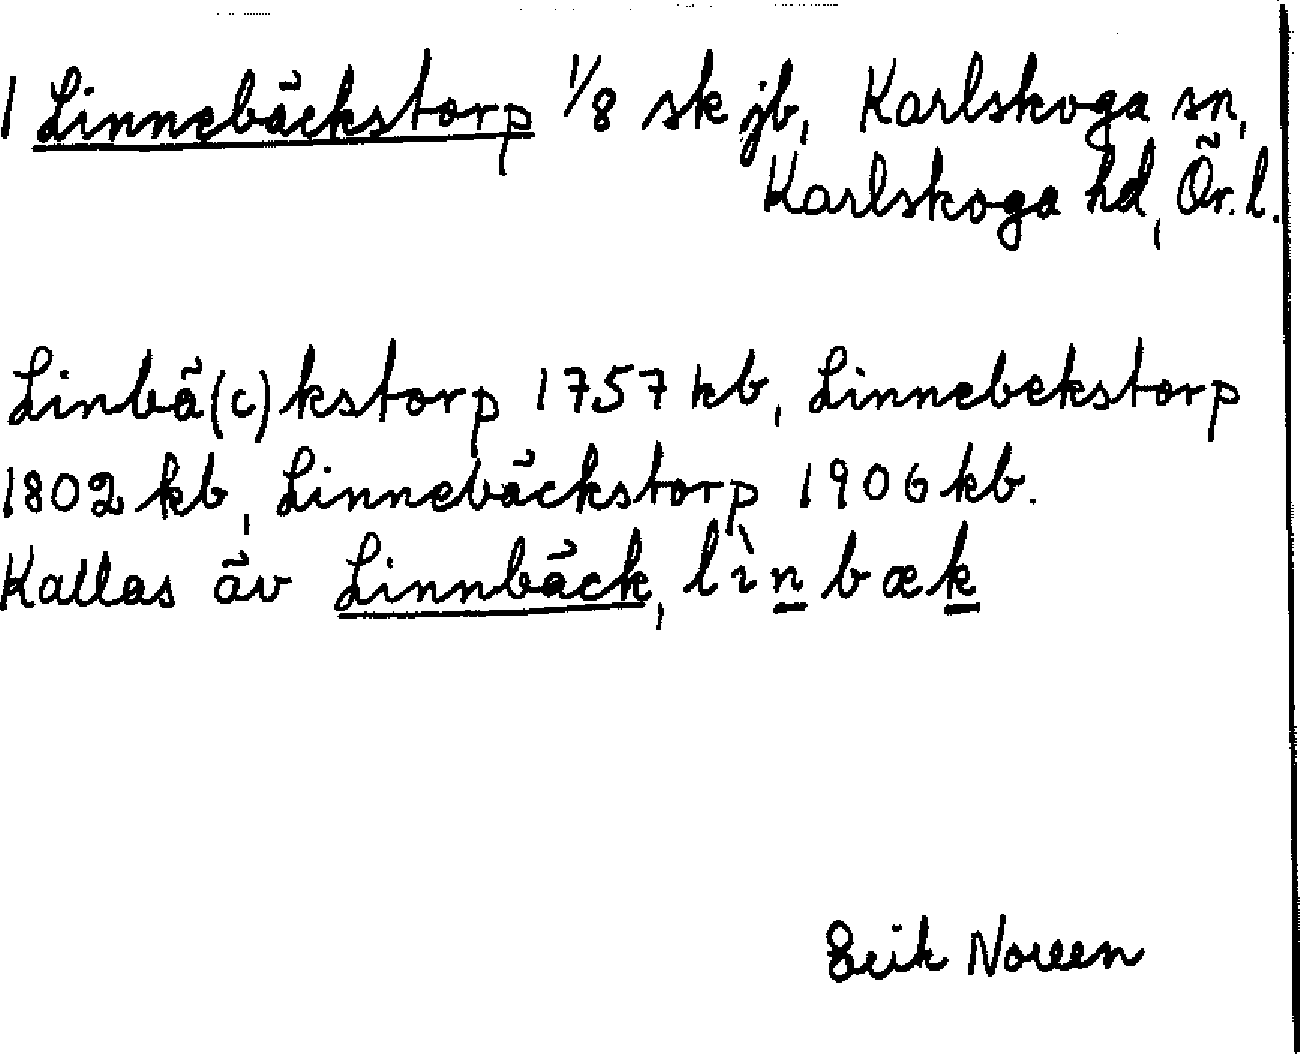 1 Linnebäckstorp 1/8 sk jb, Karlskoga sn,
Karlskoga hd, Ör. l.
Linbä(c)kstorp 1757 kb, Linnebekstorp
1802 kb, Linnebäckstorp 1906 kb.
Kallas äv Linnbäck, lìnbæk
Erik Noreen